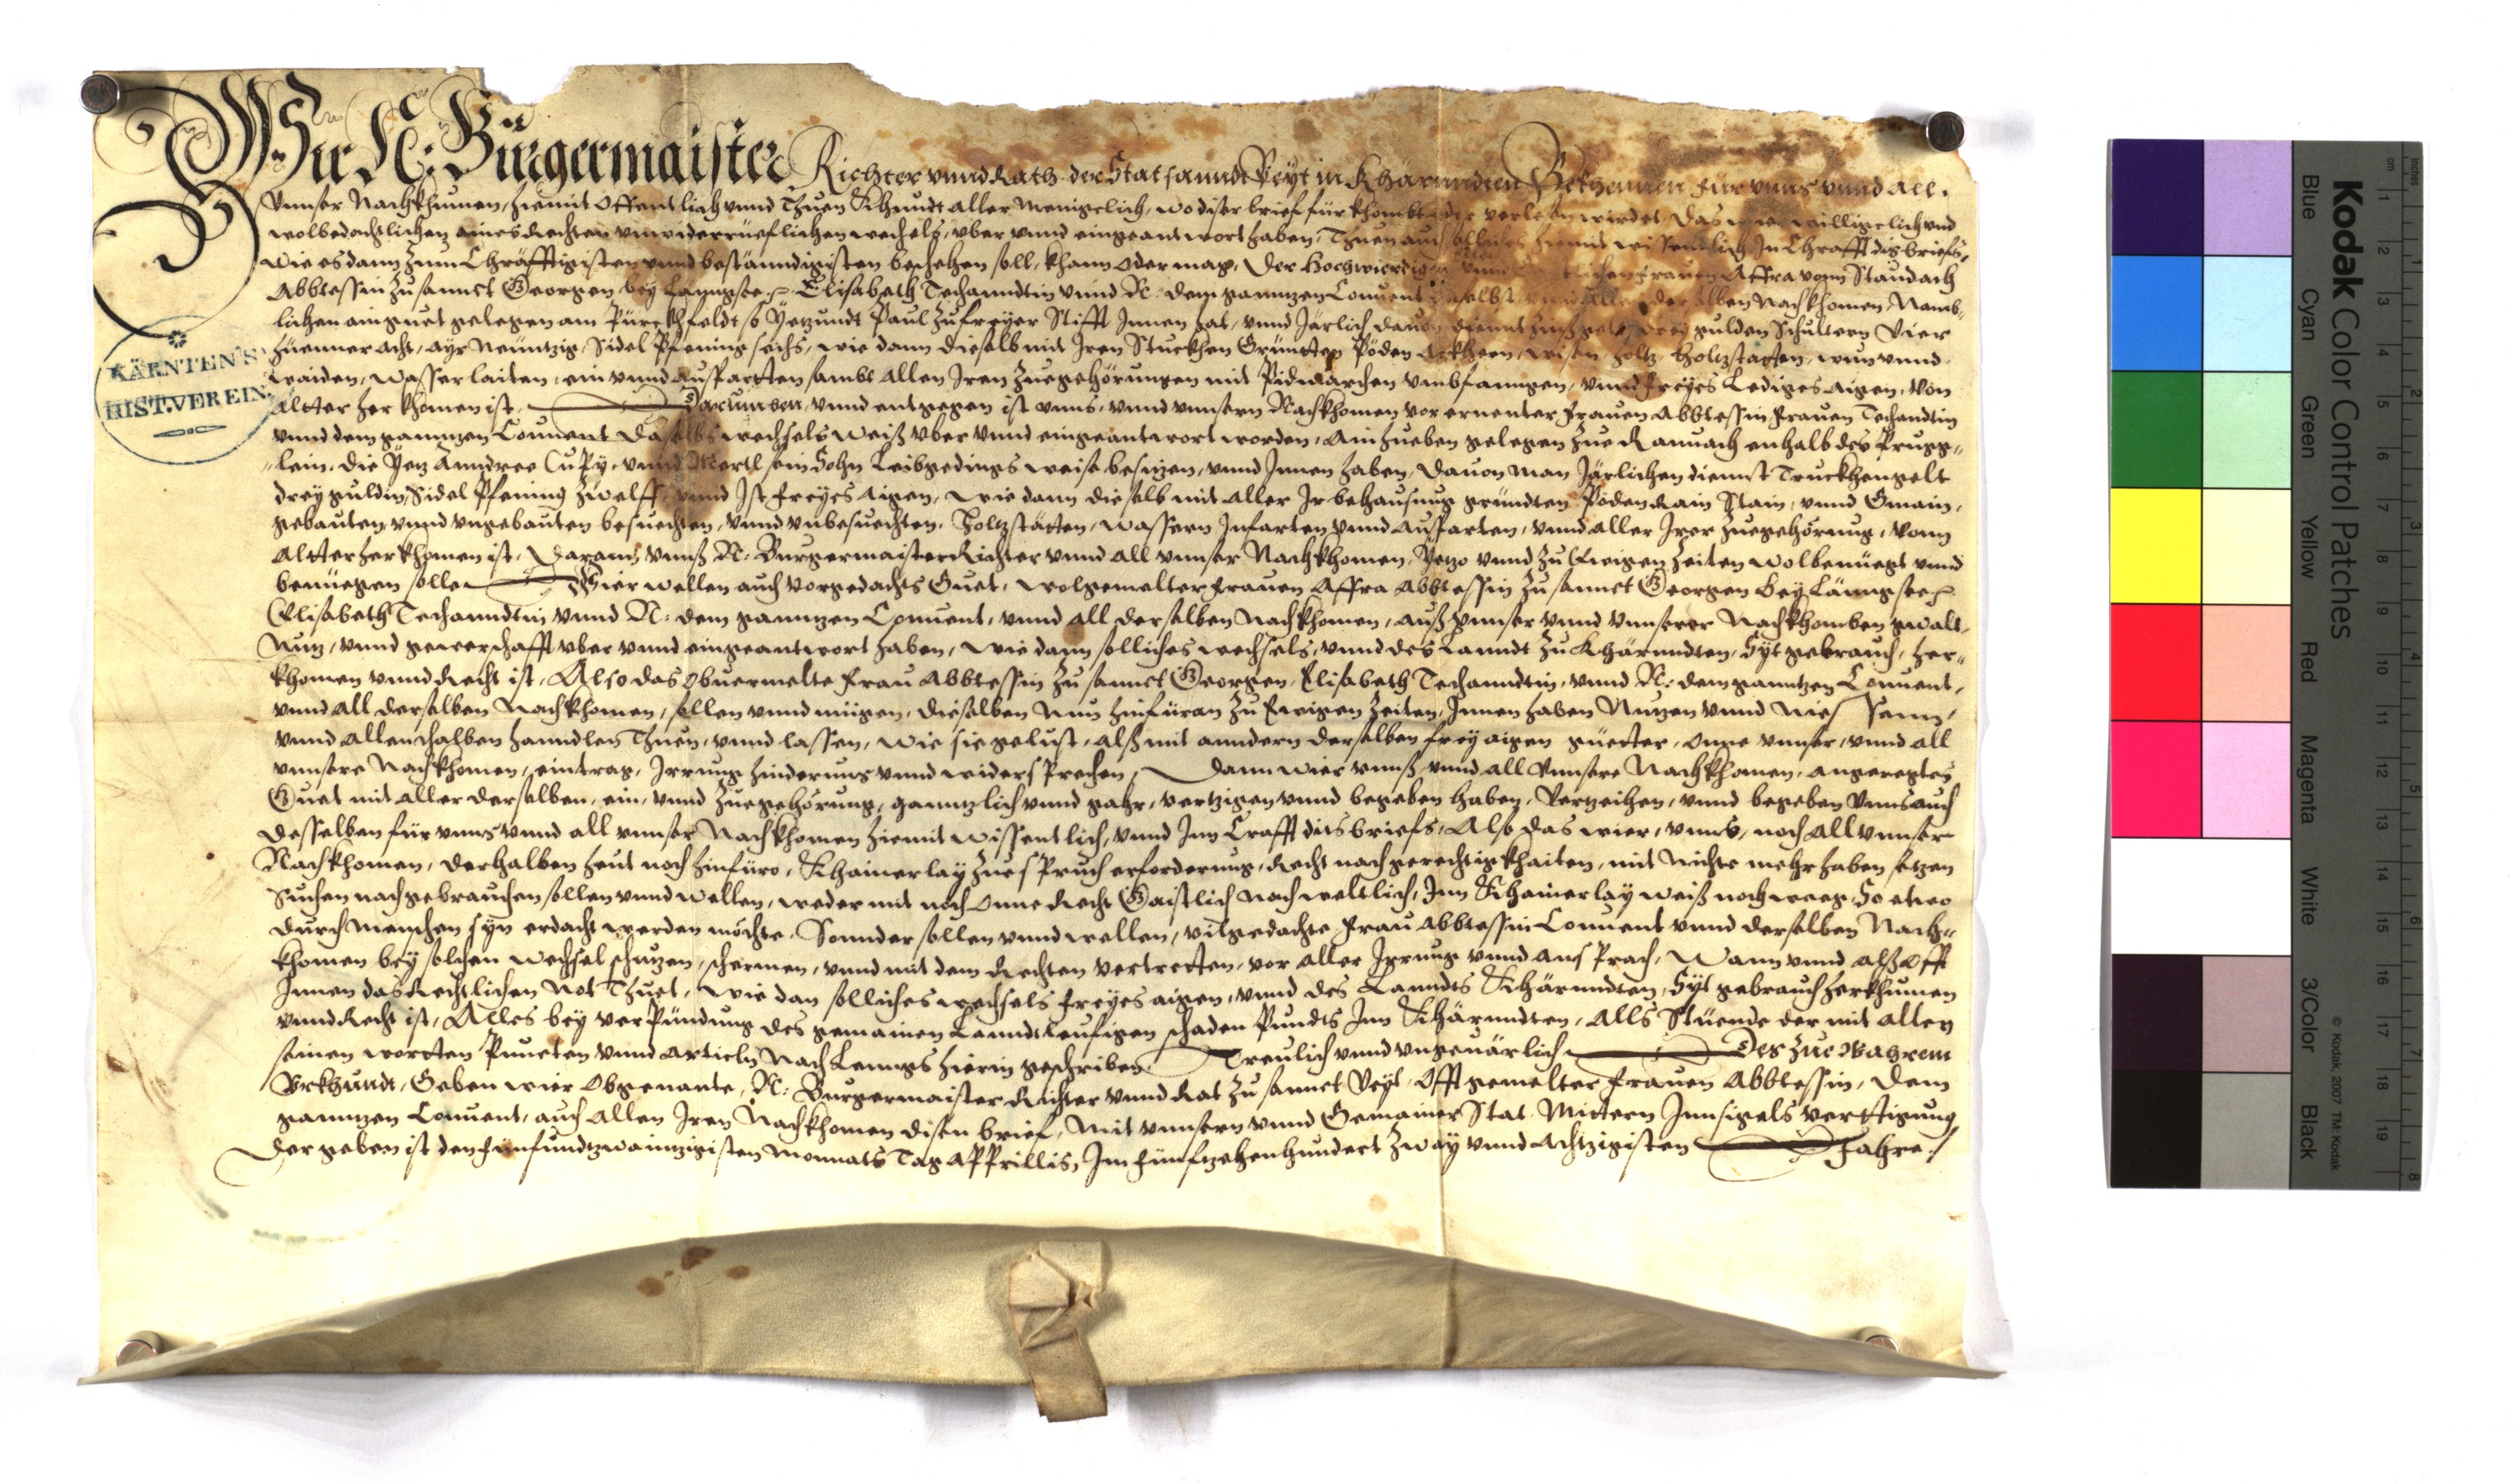 Wir N: Burgermaister Richter vnnd Rath der Stat sannct Veyt in Khärnndten Bekhennen für vnns vnnd all.
Vnnser Nachkhumen, hiemit offentlich vnnd Thuen Khundt aller Menigclich, wo diser brief fürkhombt oder verlesen wirdet, Das wir willigclich vnd
wolbedachtlichen aines Rechten vnwiderrüeflichen wechsels, vber vnnd eingeantwort haben, Thuen auch solliches hiemit wissentlich In Chrafft dis briefs,
wie es dann zum Chräfftigisten vnnd bestänndigisten beschehen soll, khann oder mag, Der Hochwierdigen vnnd frauen Affra vonn Staudach
Abbtessin zu sannct Georgen bey Lanngsee Elisabeth Techanndtin vnnd N: dem ganntzen Conuent daselbst vnd allen derselben Nachkhomen, Namb-
lichen ain guet gelegen am Pürckhfeldt so Yetzundt Paul zu freyer Stifft Innen hat, vnnd Järlich dauon diennt zinß gelt drey gulden Schultern vier
hüenner acht, ayr Neuntzig, Sidel Pfening sechs, wie dann dieselb mit Iren Stuckhen Gründten Pöden Ackhern, wisen, holtz, holtzstatten, wun vnnd
waiden, wasserlaiten, ein vnnd ausfartten sambt allen Iren zuegehörungen mit Pidmarchen vmbfanngen, vnnd freyes Lediges aigen, von
altter herkhomen ist, Darumben, vnnd entgegen ist vnns, vnnd vnnsern Nachkhomen vor ernenter frauen Abbtessin frauen Techandtin
vnnd dem ganntzen Conuent daselbs wechsels weiß vber vnnd eingeantwort worden, Ain hueben gelegen zue Ranach enhalb des Prugg-
lein, die Yetz Anndree CuPy, vnnd Mertl sein Sohn Leibgedings weise besitzen, vnnd Innen haben, dauon man Järlichen diennst Truckhengelt
drey guldin, Sidel Pfening zwelff, vnnd Ist freyes aigen, wie dann dieselb mit aller Ir behausung gründten Pöden Rain Stain, vnnd Gmain,
gebauten vnnd vngebauten besuechten, vnnd vnbesuechten, Holtzstätten, wassern Infarten vnnd ausfarten, vnnd aller Irer zuegehörung, vonn
altter herkhomen ist, Daranz vnnß N: Burgermaister Richter vnnd all vnnser Nachkhomen, Yetzo vnnd zu Ewigen zeiten wolbenüegt vnnd
benüegen solle Wier wellen auch vorgedachts Guet, wolgemelter frauen Affra Abbtessin zu sannct Georgen bey Lanngsee
Elisabeth Techanndtin vnnd N: dem ganntzen Conuent, vnnd all derselben Nachkhomen, auß vnnser vnnd vnnserer Nachkhomben gwalt,
Nutz, vnnd gewerschafft vber vnnd eingeantwort haben, wie dann solliches wechsels, vnnd des Lanndt zu Khärnndten, Syt gebrauch, her-
khomen vnnd Recht ist, Also das obuermelte frau Abbtessin zu sannct Georgen, Elisabeth Techanndtin, vnnd N: dem ganntzen Conuent,
vnnd all derselben Nachkhomen, sollen vnnd mügen, dieselben Nun hinfüran zu Ewigen zeiten, Innen haben Nutzen vnnd Niessen,
vnnd allenthalben hanndlen Thuen, vnnd lassen, wie sie gelust, alß mit anndern derselben frey aigen güetter, onne vnnser, vnnd all
vnnsere Nachkhomen, eintrag, Irrung hinderung vnnd widersPrechen, Dann wier vnnß vnnd all vnnsere Nachkhomen, angeregtes
Guet mit aller derselben, ein, vnnd zuegehörung, ganntzlich vnnd gahr, vertzigen vnnd begeben haben, Vertzeihen, vnnd begeben vnns auch
desselben für vnns vnnd all vnnser Nachkhomen hiemit wissentlich, vnnd Inn Crafft dits briefs, Also das wier, vnns, noch all vnnser
Nachkhomen, derhalben heut noch hinfüro, Khainerlay zuesPruch erforderung, Recht nach gerechtigkhaiten, mit Nichte mehr haben setzen
Suchen nach gebrauchen sollen vnnd wellen, weder mit noch Onne Recht Gaistlich noch weltlich, Inn Khainerlay weiß noch weeg, So etwo
durch Menschen syn erdacht werden möchte, Sonnder sollen vnnd wellen, vilgedachte frau Abbtessin Conuent vnnd derselben Nach-
khomen bey solchen wechsel schutzen, schermen, vnnd mit dem Rechten vertretten, vor aller Irrung vnnd ansPrach, Wann vnnd alß offt
Innen das Rechtlichen Not Thuet, wie dan solliches wechsels freyes aigen, vnnd des Lanndts Khärnndten, Syt gebrauch herkhumen
vnnd Recht ist, Alles bey verPündung des gemainen Lanndtleufigen schaden Pundts Inn Khärnndten, Alls Stüende der mit allen
seinen wortten Puncten vnnd Articln Nach Lenngs hierin geschriben, Treulich vnnd vngeuärlich Des zue Wahrem
Vrkhundt, Geben wier Obgenante, N: Burgermaister Richter vnnd Rat zu sannct Veyt, Offtgemelter frauen Abbtessin, dem
ganntzen Conuent, auch allen Iren Nachkhomen disen brief, Mit vnnsern vnnd Gemainer Stat Mittern Innsigels verttigung,
Der geben ist den fünfundtzwaintzigisten Monnats Tag Apprillis, Im fünfzehenhundert zway vnnd achtzigisten Jahre.
KÄRNTEN'S
HIST. VEREIN
Kodak Color Control Patches
Blue Cyan Green Yellow Red Magenta White 3/Color Black
© Kodak, 2007 TM: Kodak
cm 1 2 3 4 5 6 7 8 9 10 11 12 13 14 15 16 17 18 19
inches 1 2 3 4 5 6 7 8